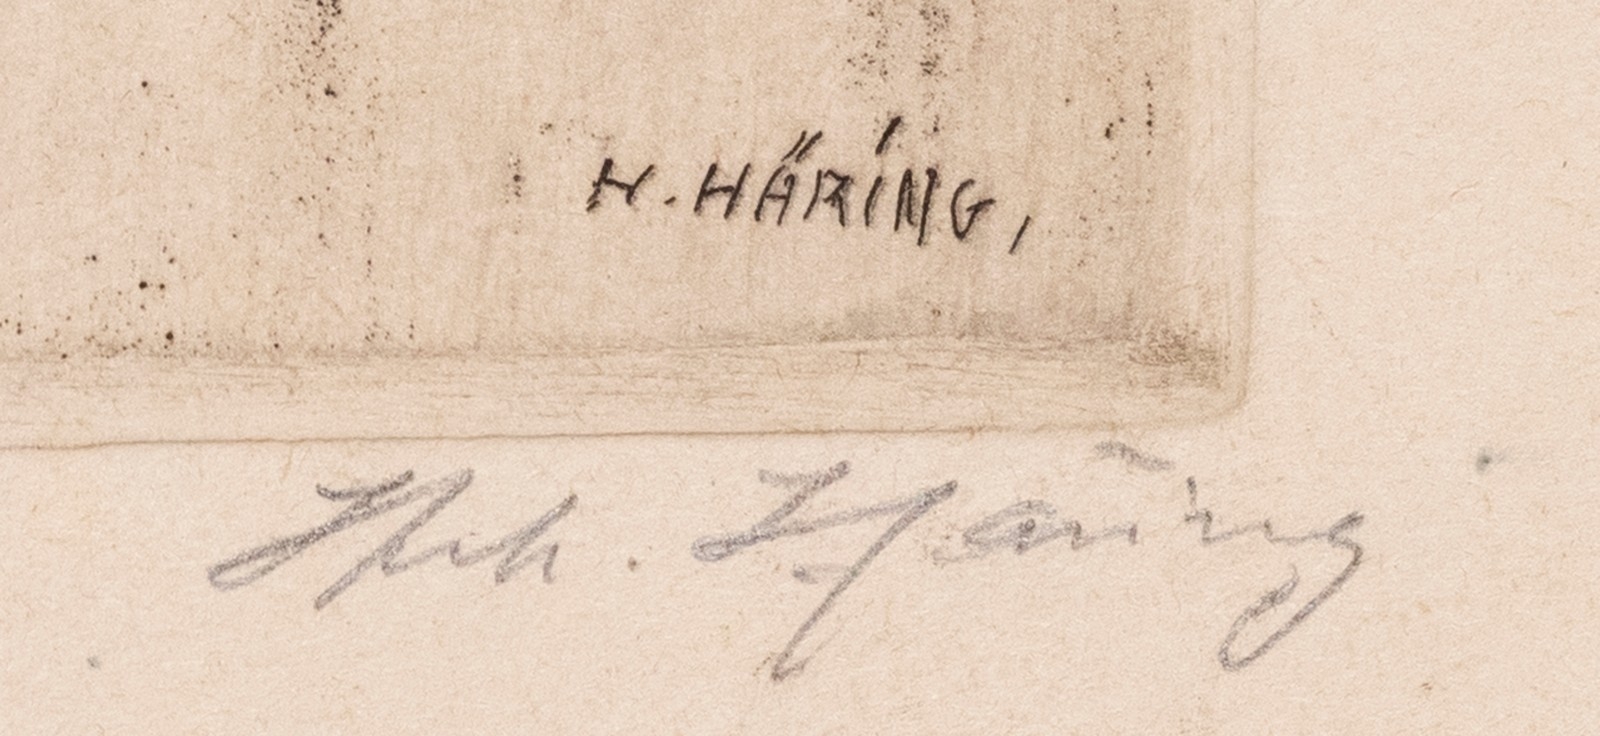 H. HÄRING,
Hch. Häring